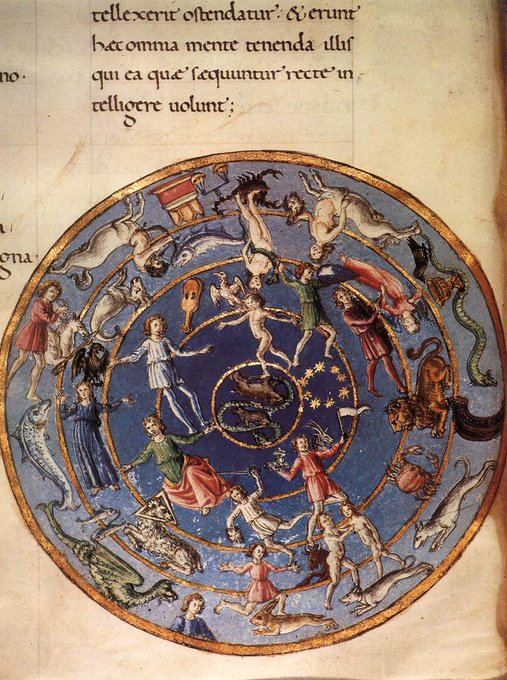 tellexerit ostendatur· & erunt
hæc omnia mente tenenda illis
qui ea quæ sæquuntur recte in
telligere uolunt;
no·
a
gna·